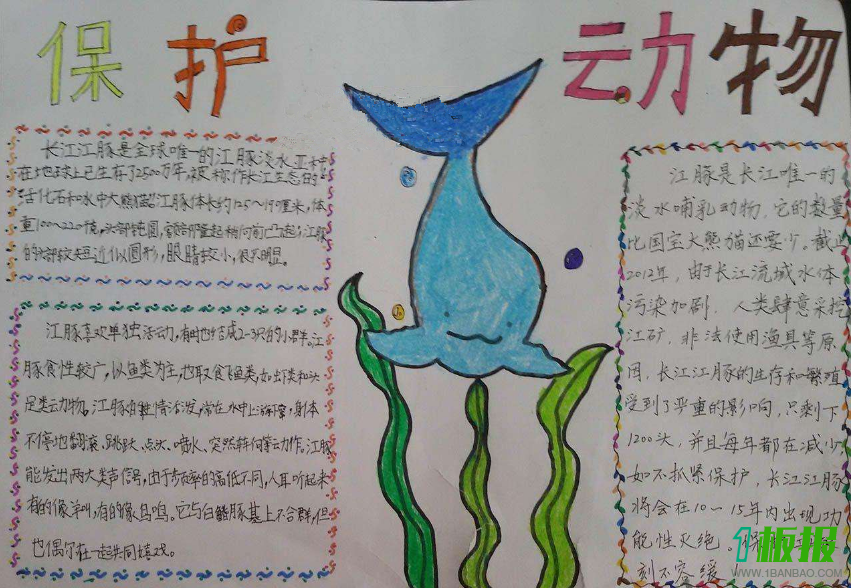 保护
动物
长江江豚是全球唯一的江豚淡水亚种
在地球上已生存了2500万年,被称作长江生态的
活化石和水中大熊猫。江豚体长约120~190厘米,体
重100~220千克,头部钝圆,额部隆起稍向前凸起;江豚
的头部较短近似圆形,眼睛较小,很不明显。
江豚喜欢单独活动,有时也结成2~3只的小群。江
豚食性较广,以鱼类为主,也取食虾类和头
足类动物。江豚性情活泼,常在水中上游下窜,身体
不停地翻滚、跳跃、点头、喷水、突然转向等动作。江豚
能发出两大类声信号,由于频率的高低不同,人耳听起来
有的像羊叫,有的像鸟鸣。它与白鱀豚基上不合群,但
也偶尔在一起共同嬉戏。
江豚是长江唯一的
淡水哺乳动物,它的数量
比国宝大熊猫还要少。截止
2012年,由于长江流域水体
污染加剧,人类肆意采挖
江矿,非法使用渔具等原
因,长江江豚的生存和繁殖
受到了严重的影响,只剩下
1200头,并且每年都在减少
如不抓紧保护,长江江豚
将会在10~15年内出现功
能性灭绝。保
刻不容缓
1板报
WWW.1BANBAO.COM